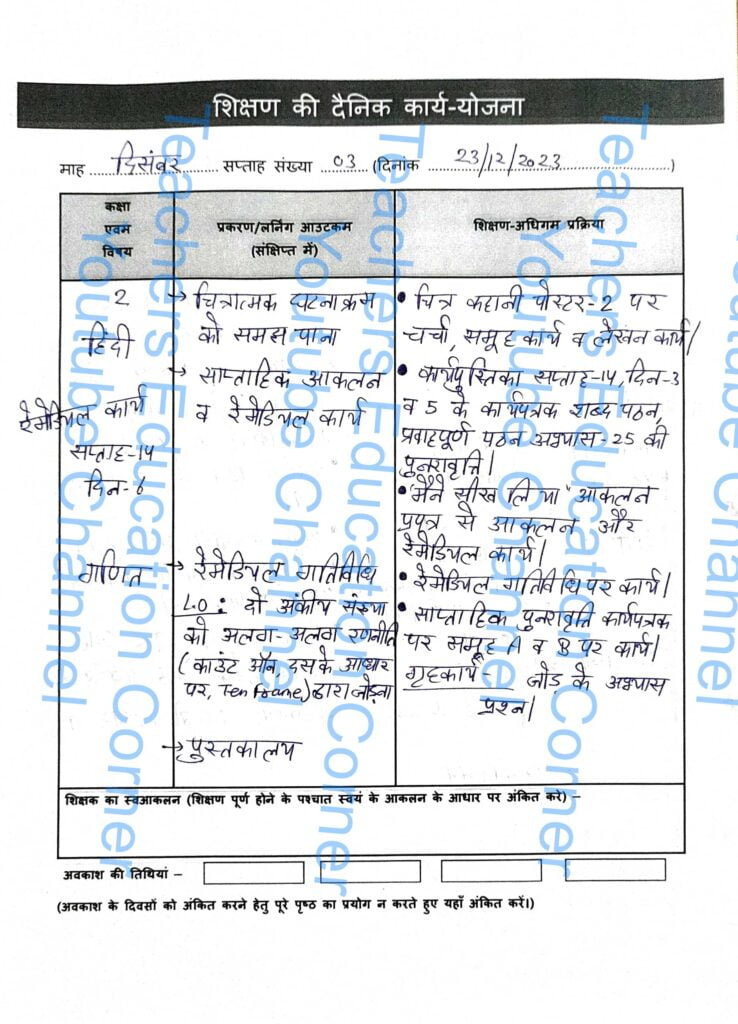 शिक्षण की दैनिक कार्य-योजना
माह दिसंबर सप्ताह संख्या 03 (दिनांक 23/12/2023)
कक्षा
एवम
विषय
प्रकरण/लर्निंग आउटकम
(संक्षिप्त में)
शिक्षण-अधिगम प्रक्रिया
2
हिंदी
रेमेडियल कार्य
सप्ताह-14
दिन-6
गणित
→ चित्रात्मक घटनाक्रम
को समझ पाना
→ साप्ताहिक आकलन
व रेमेडियल कार्य
→ रेमेडियल गतिविधि
L.O : दो अंकीय संख्या
को अलग-अलग रणनीति
(काउंट ऑन, दस के आधार
पर, Ten frame) द्वारा जोड़ना
→ पुस्तकालय
• चित्र कहानी पोस्टर-2 पर
चर्चा, समूह कार्य व लेखन कार्य|
• कार्यपुस्तिका सप्ताह-14, दिन-3
व 5 के कार्यपत्रक शब्द पठन,
प्रवाहपूर्ण पठन अभ्यास-25 की
पुनरावृत्ति|
• "मैने सीख लिया" आकलन
प्रपत्र से आकलन और
रेमेडियल कार्य|
• रेमेडियल गतिविधि पर कार्य|
• साप्ताहिक पुनरावृत्ति कार्यपत्रक
पर समूह A व B पर कार्य|
गृहकार्य- जोड़ के अभ्यास
प्रश्न|
शिक्षक का स्वआकलन (शिक्षण पूर्ण होने के पश्चात स्वयं के आकलन के आधार पर अंकित करे) –
अवकाश की तिथियां –
(अवकाश के दिवसों को अंकित करने हेतु पूरे पृष्ठ का प्रयोग न करते हुए यहाँ अंकित करें।)
Teachers Education Corner
Youtube Channel
Teachers Education Corner
Youtube Channel
Teachers Education Corner
Youtube Channel